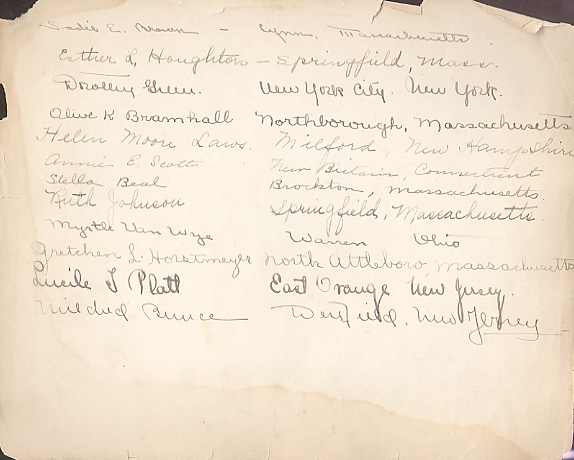 Sadie E. Brown - Lynn, Massachusetts
Esther L. Houghton - Springfield, Mass.
Dorothy Green. New York City. New York.
Alive K Bramhall Northborough, Massachusetts
Helen Moore Laws. Milford, New Hampshire
Annie E. Scott New Britain, Connecticut
Stella Beal Brockton, Massachusetts.
Ruth Johnson Springfield, Massachusetts.
Myrtle Van Wye Warren Ohio
Gretchen L. Horstmeyer North Attleboro, Massachusetts
Lucile T Platt East Orange New Jersey.
Mildred Bunce Westfield, New Jersey